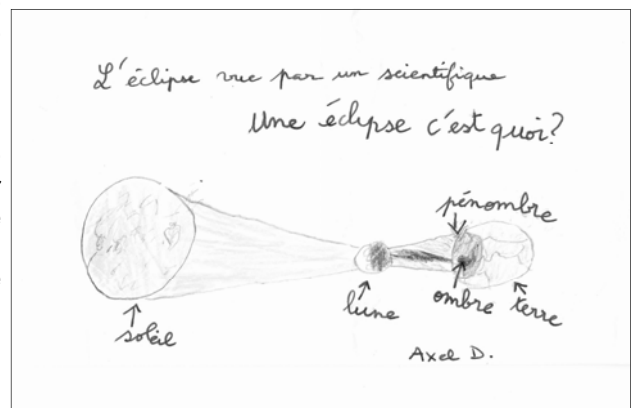 L'éclipse vue par un scientifique
Une éclipse c'est quoi?
pénombre
soleil
lune
ombre
terre
Axel D.